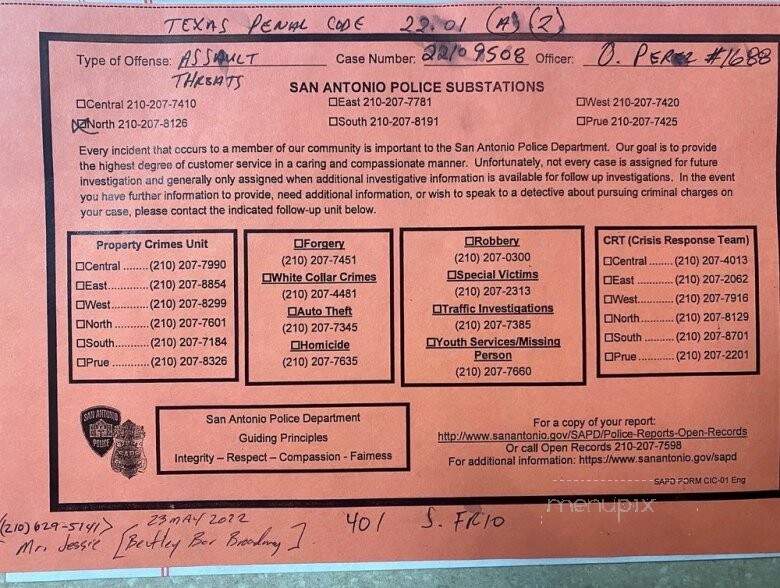 TEXAS PENAL CODE 22.01 (A)(2)
Type of Offense: ASSAULT Case Number: 22109508 Officer: O. PEREZ #1688
THREATS
SAN ANTONIO POLICE SUBSTATIONS
☐Central 210-207-7410 ☐East 210-207-7781 ☐West 210-207-7420
☒North 210-207-8126 ☐South 210-207-8191 ☐Prue 210-207-7425
Every incident that occurs to a member of our community is important to the San Antonio Police Department. Our goal is to provide
the highest degree of customer service in a caring and compassionate manner. Unfortunately, not every case is assigned for future
investigation and generally only assigned when additional investigative information is available for follow up investigations. In the event
you have further information to provide, need additional information, or wish to speak to a detective about pursuing criminal charges on
your case, please contact the indicated follow-up unit below.
Property Crimes Unit
☐Central ......(210) 207-7990
☐East...........(210) 207-8854
☐West..........(210) 207-8299
☐North .........(210) 207-7601
☐South.........(210) 207-7184
☐Prue ..........(210) 207-8326
☐Forgery
(210) 207-7451
☐White Collar Crimes
(210) 207-4481
☐Auto Theft
(210) 207-7345
☐Homicide
(210) 207-7635
☐Robbery
(210) 207-0300
☐Special Victims
(210) 207-2313
☐Traffic Investigations
(210) 207-7385
☐Youth Services/Missing
Person
(210) 207-7660
CRT (Crisis Response Team)
☐Central ...... (210) 207-4013
☐East .......... (210) 207-2062
☐West.......... (210) 207-7916
☐North ......... (210) 207-8129
☐South ........ (210) 207-8701
☐Prue .......... (210) 207-2201
SAN ANTONIO
POLICE
SAPD
San Antonio Police Department
Guiding Principles
Integrity – Respect – Compassion - Fairness
For a copy of your report:
http://www.sanantonio.gov/SAPD/Police-Reports-Open-Records
Or call Open Records 210-207-7598
For additional information: https://www.sanantonio.gov/sapd
SAPD FORM CIC-01 Eng
menupix
(210) 629-5141 23 MAY 2022 401 S. FRIO
Mr. Jessie [ Bar Broadway ]